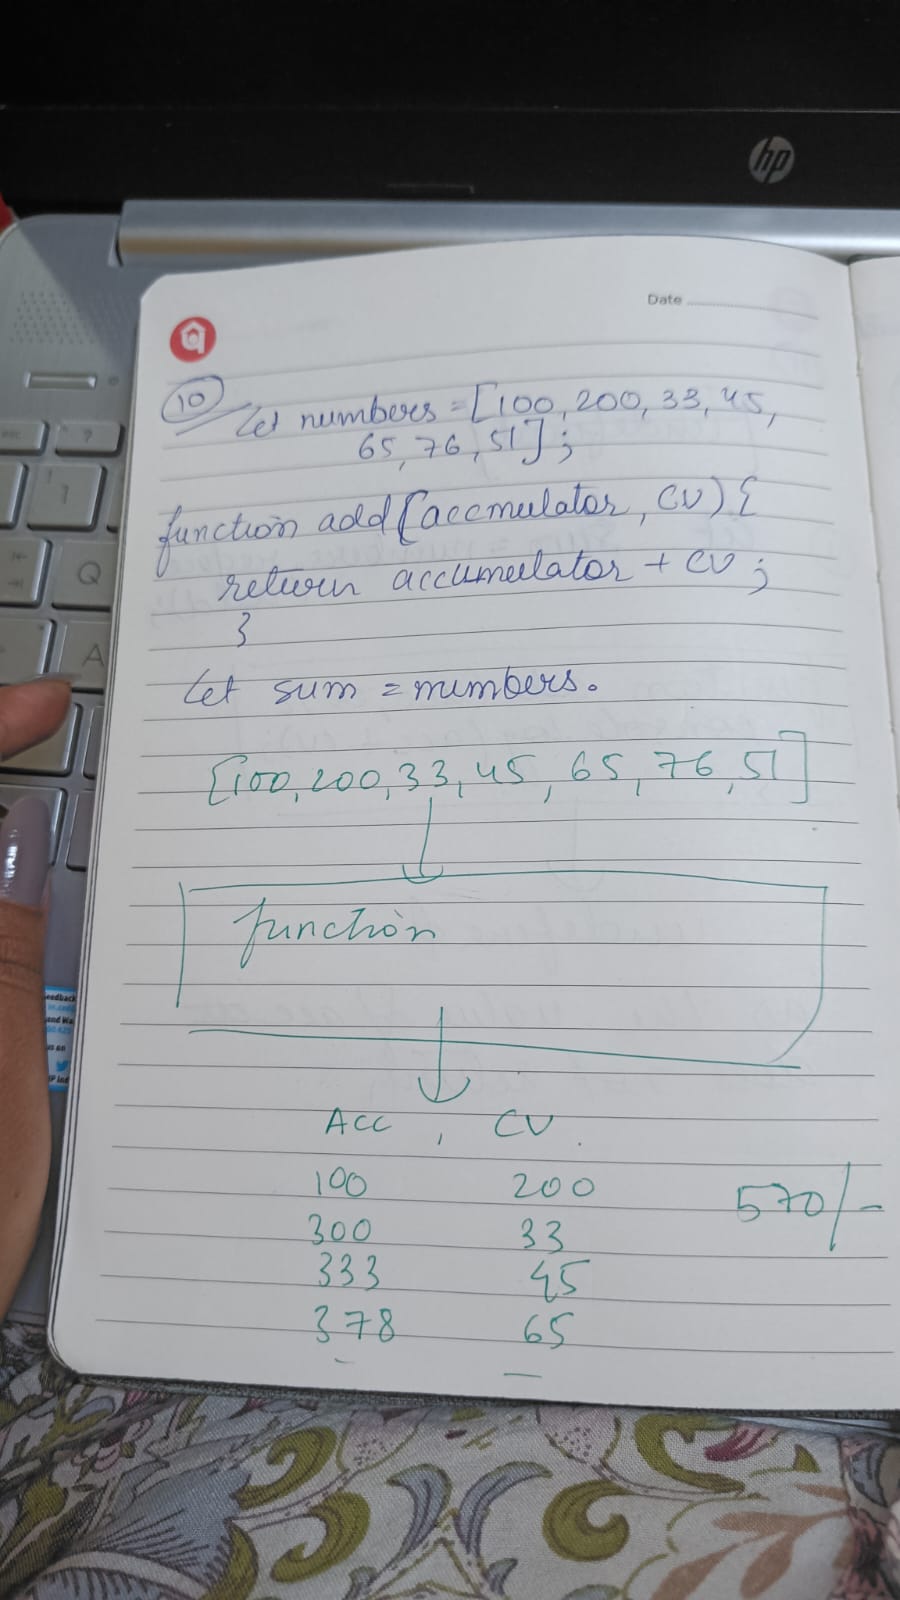 hp
Date
10
let numbers = [100, 200, 33, 45,
65, 76, 51];
function add (accmulator, CV) {
return accumulator + CV;
}
let sum = numbers.
[100, 200, 33, 45, 65, 76, 51]
function
ACC , CV
100 200
570/-
300 33
333 45
378 65
Q
A